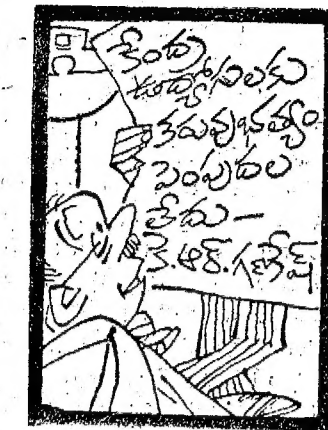 కేంద్ర
ఉద్యోగులకు
కరువుభత్యం
పెంపుదల
లేదు —
కె.ఆర్.గణేష్